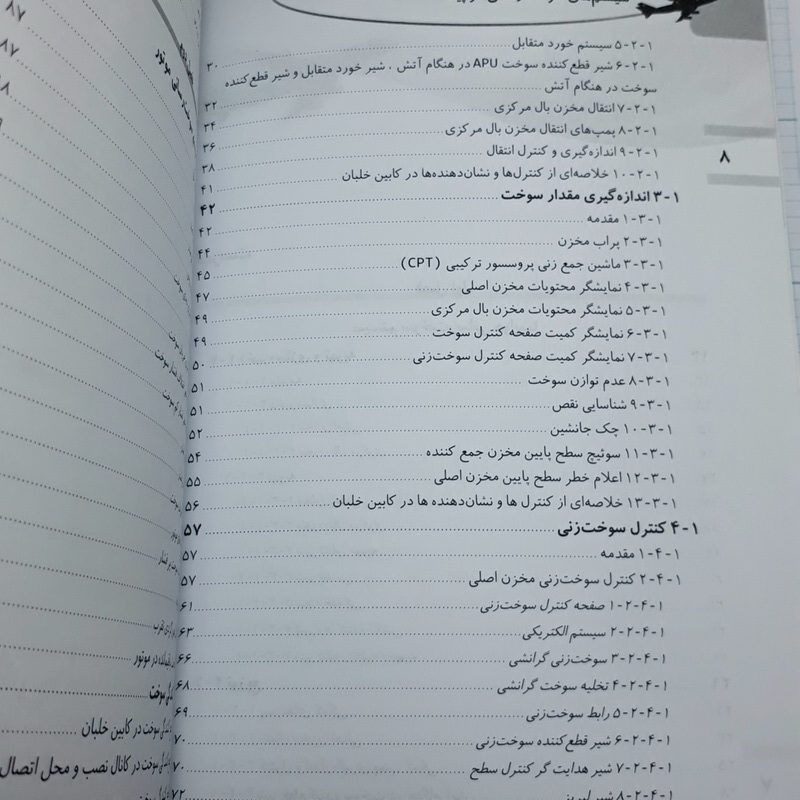 ۸
۱-۲-۵ سیستم خورد متقابل ۳۰
۱-۲-۶ شیر قطع‌کننده سوخت APU در هنگام آتش ، شیر خورد متقابل و شیر قطع‌کننده
سوخت در هنگام آتش ۳۲
۱-۲-۷ انتقال مخزن بال مرکزی ۳۴
۱-۲-۸ پمپ‌های انتقال مخزن بال مرکزی ۳۶
۱-۲-۹ اندازه‌گیری و کنترل انتقال ۳۸
۱-۲-۱۰ خلاصه‌ای از کنترل‌ها و نشان‌دهنده‌ها در کابین خلبان ۴۱
۱-۳ اندازه‌گیری مقدار سوخت ۴۲
۱-۳-۱ مقدمه ۴۲
۱-۳-۲ پراب مخزن ۴۴
۱-۳-۳ ماشین جمع زنی پروسسور ترکیبی (CPT) ۴۵
۱-۳-۴ نمایشگر محتویات مخزن اصلی ۴۷
۱-۳-۵ نمایشگر محتویات مخزن بال مرکزی ۴۹
۱-۳-۶ نمایشگر کمیت صفحه کنترل سوخت ۴۹
۱-۳-۷ نمایشگر کمیت صفحه کنترل سوخت‌زنی ۵۰
۱-۳-۸ عدم توازن سوخت ۵۱
۱-۳-۹ شناسایی نقص ۵۱
۱-۳-۱۰ چک جانشین ۵۲
۱-۳-۱۱ سوئیچ سطح پایین مخزن جمع کننده ۵۴
۱-۳-۱۲ اعلام خطر سطح پایین مخزن اصلی ۵۵
۱-۳-۱۳ خلاصه‌ای از کنترل ها و نشان‌دهنده ها در کابین خلبان ۵۶
۱-۴ کنترل سوخت‌زنی ۵۷
۱-۴-۱ مقدمه ۵۷
۱-۴-۲ کنترل سوخت‌زنی مخزن اصلی ۵۷
۱-۴-۲-۱ صفحه کنترل سوخت‌زنی ۶۱
۱-۴-۲-۲ سیستم الکتریکی ۶۳
۱-۴-۲-۳ سوخت‌زنی گرانشی ۶۶
۱-۴-۲-۴ تخلیه سوخت گرانشی ۶۸
۱-۴-۲-۵ رابط سوخت‌زنی ۶۹
۱-۴-۲-۶ شیر قطع‌کننده سوخت‌زنی ۷۰
۱-۴-۲-۷ شیر هدایت گر کنترل سطح ۷۰
۱-۴-۲-۸ شیر لبریز ۷۲
۸۷
۸۷
موتور
در موتور
سوخت در کابین خلبان
سوخت در کانال نصب و محل اتصال